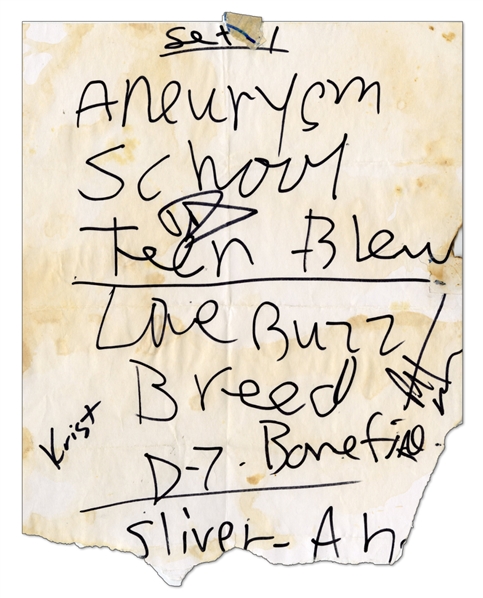 Set 1
Aneurysm
School
Teen Blew
Love Buzz
Breed
Krist
D-7. Bonefide.
Sliver - Ah